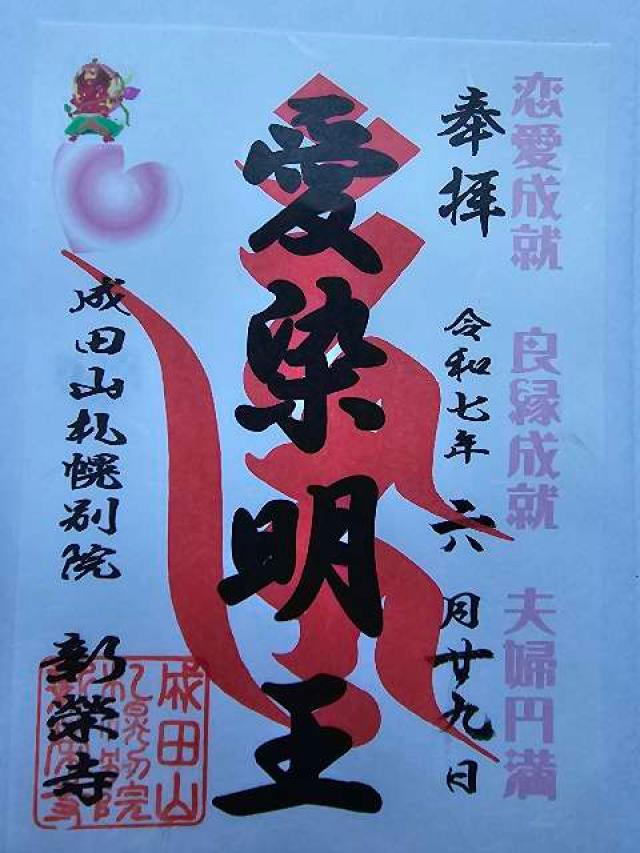 恋愛成就 良縁成就 夫婦円満
奉拝
令和七年 六月廿九日
愛染明王
成田山札幌別院 新榮寺
成田山
札幌別院
新栄寺